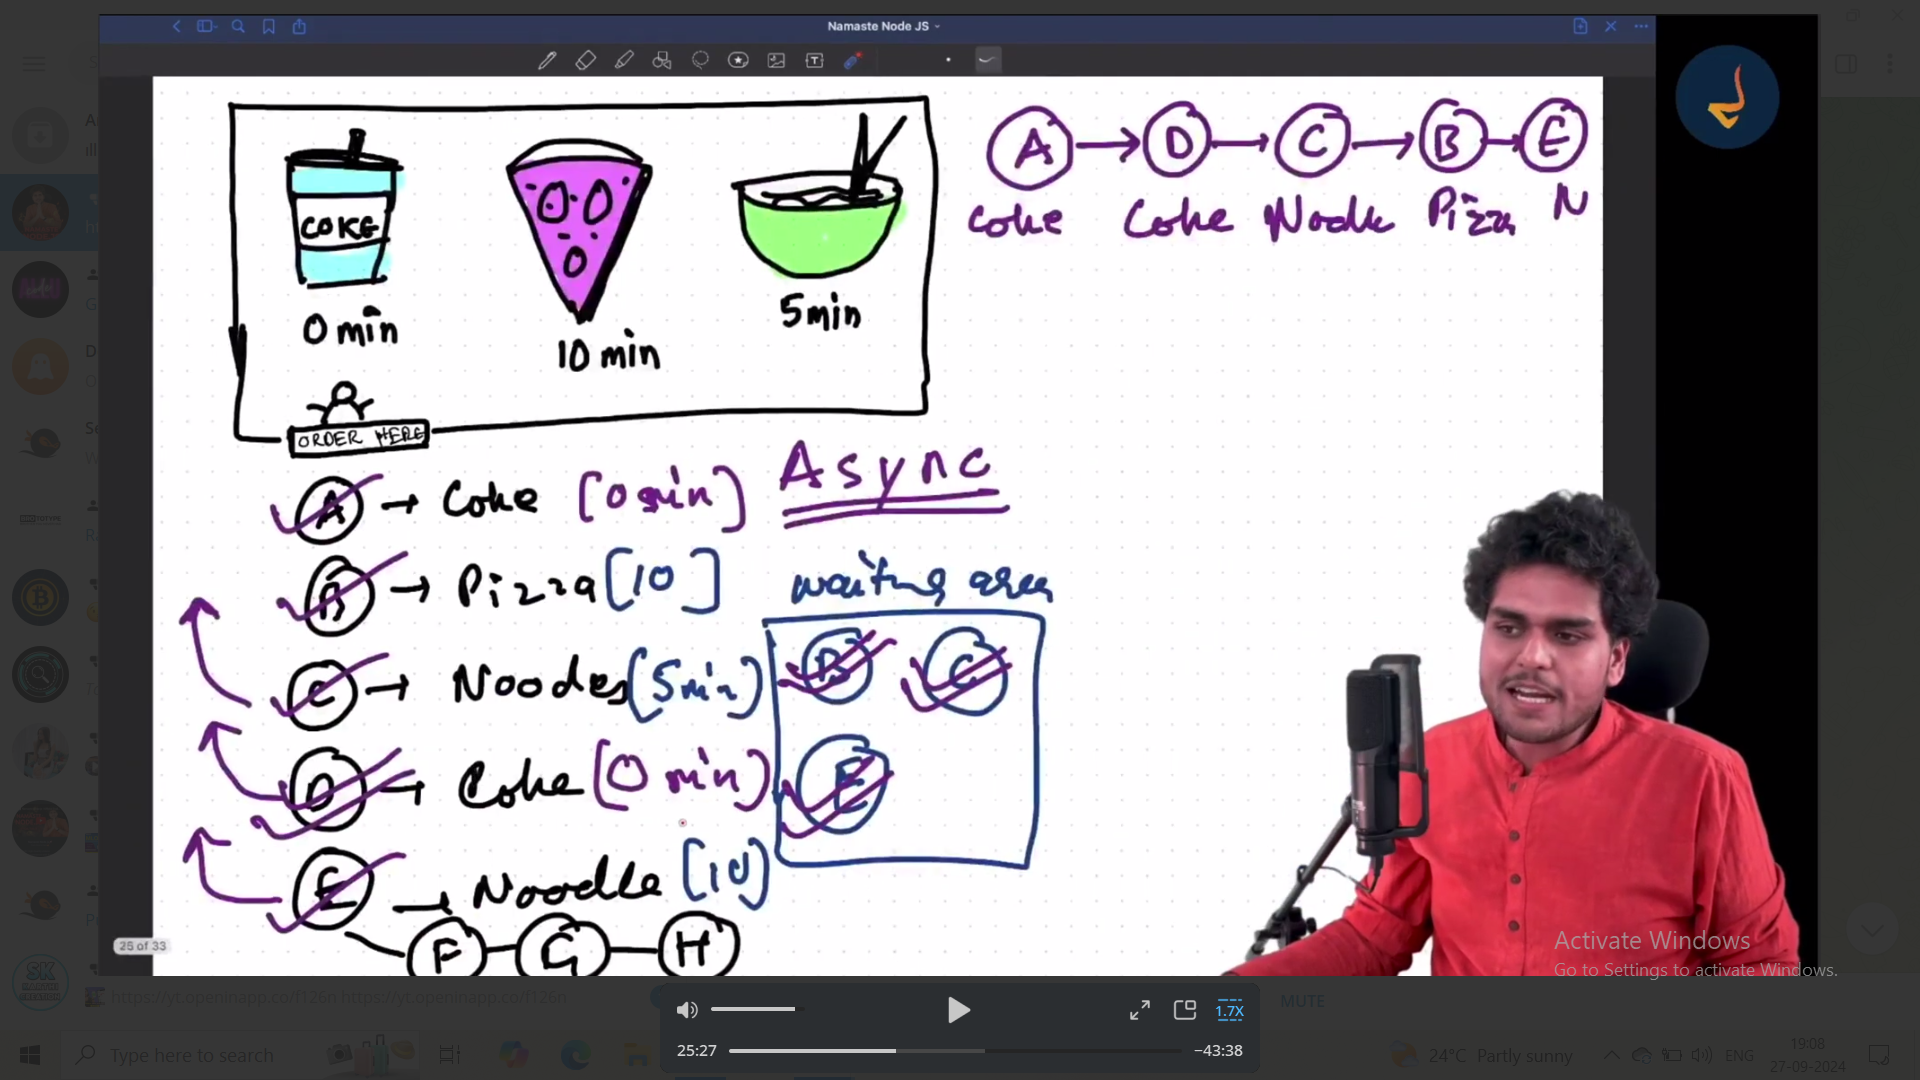 Namaste Node JS
COKE
0 min
10 min
5min
ORDER HERE
A → D → C → B → E
Coke Coke Noodle Pizza N
A → Coke [0 min] Async
B → Pizza [10]
waiting area
C → Noodes (5min)
B C
D → Coke (0 min)
E
E → Noodle [10]
F G H
25 of 33
Activate Windows
Go to Settings to activate Windows.
https://yt.openinapp.co/f126n https://yt.openinapp.co/f126n
MUTE
1.7X
25:27
−43:38
Type here to search
24°C Partly sunny
ENG
19:08
27-09-2024